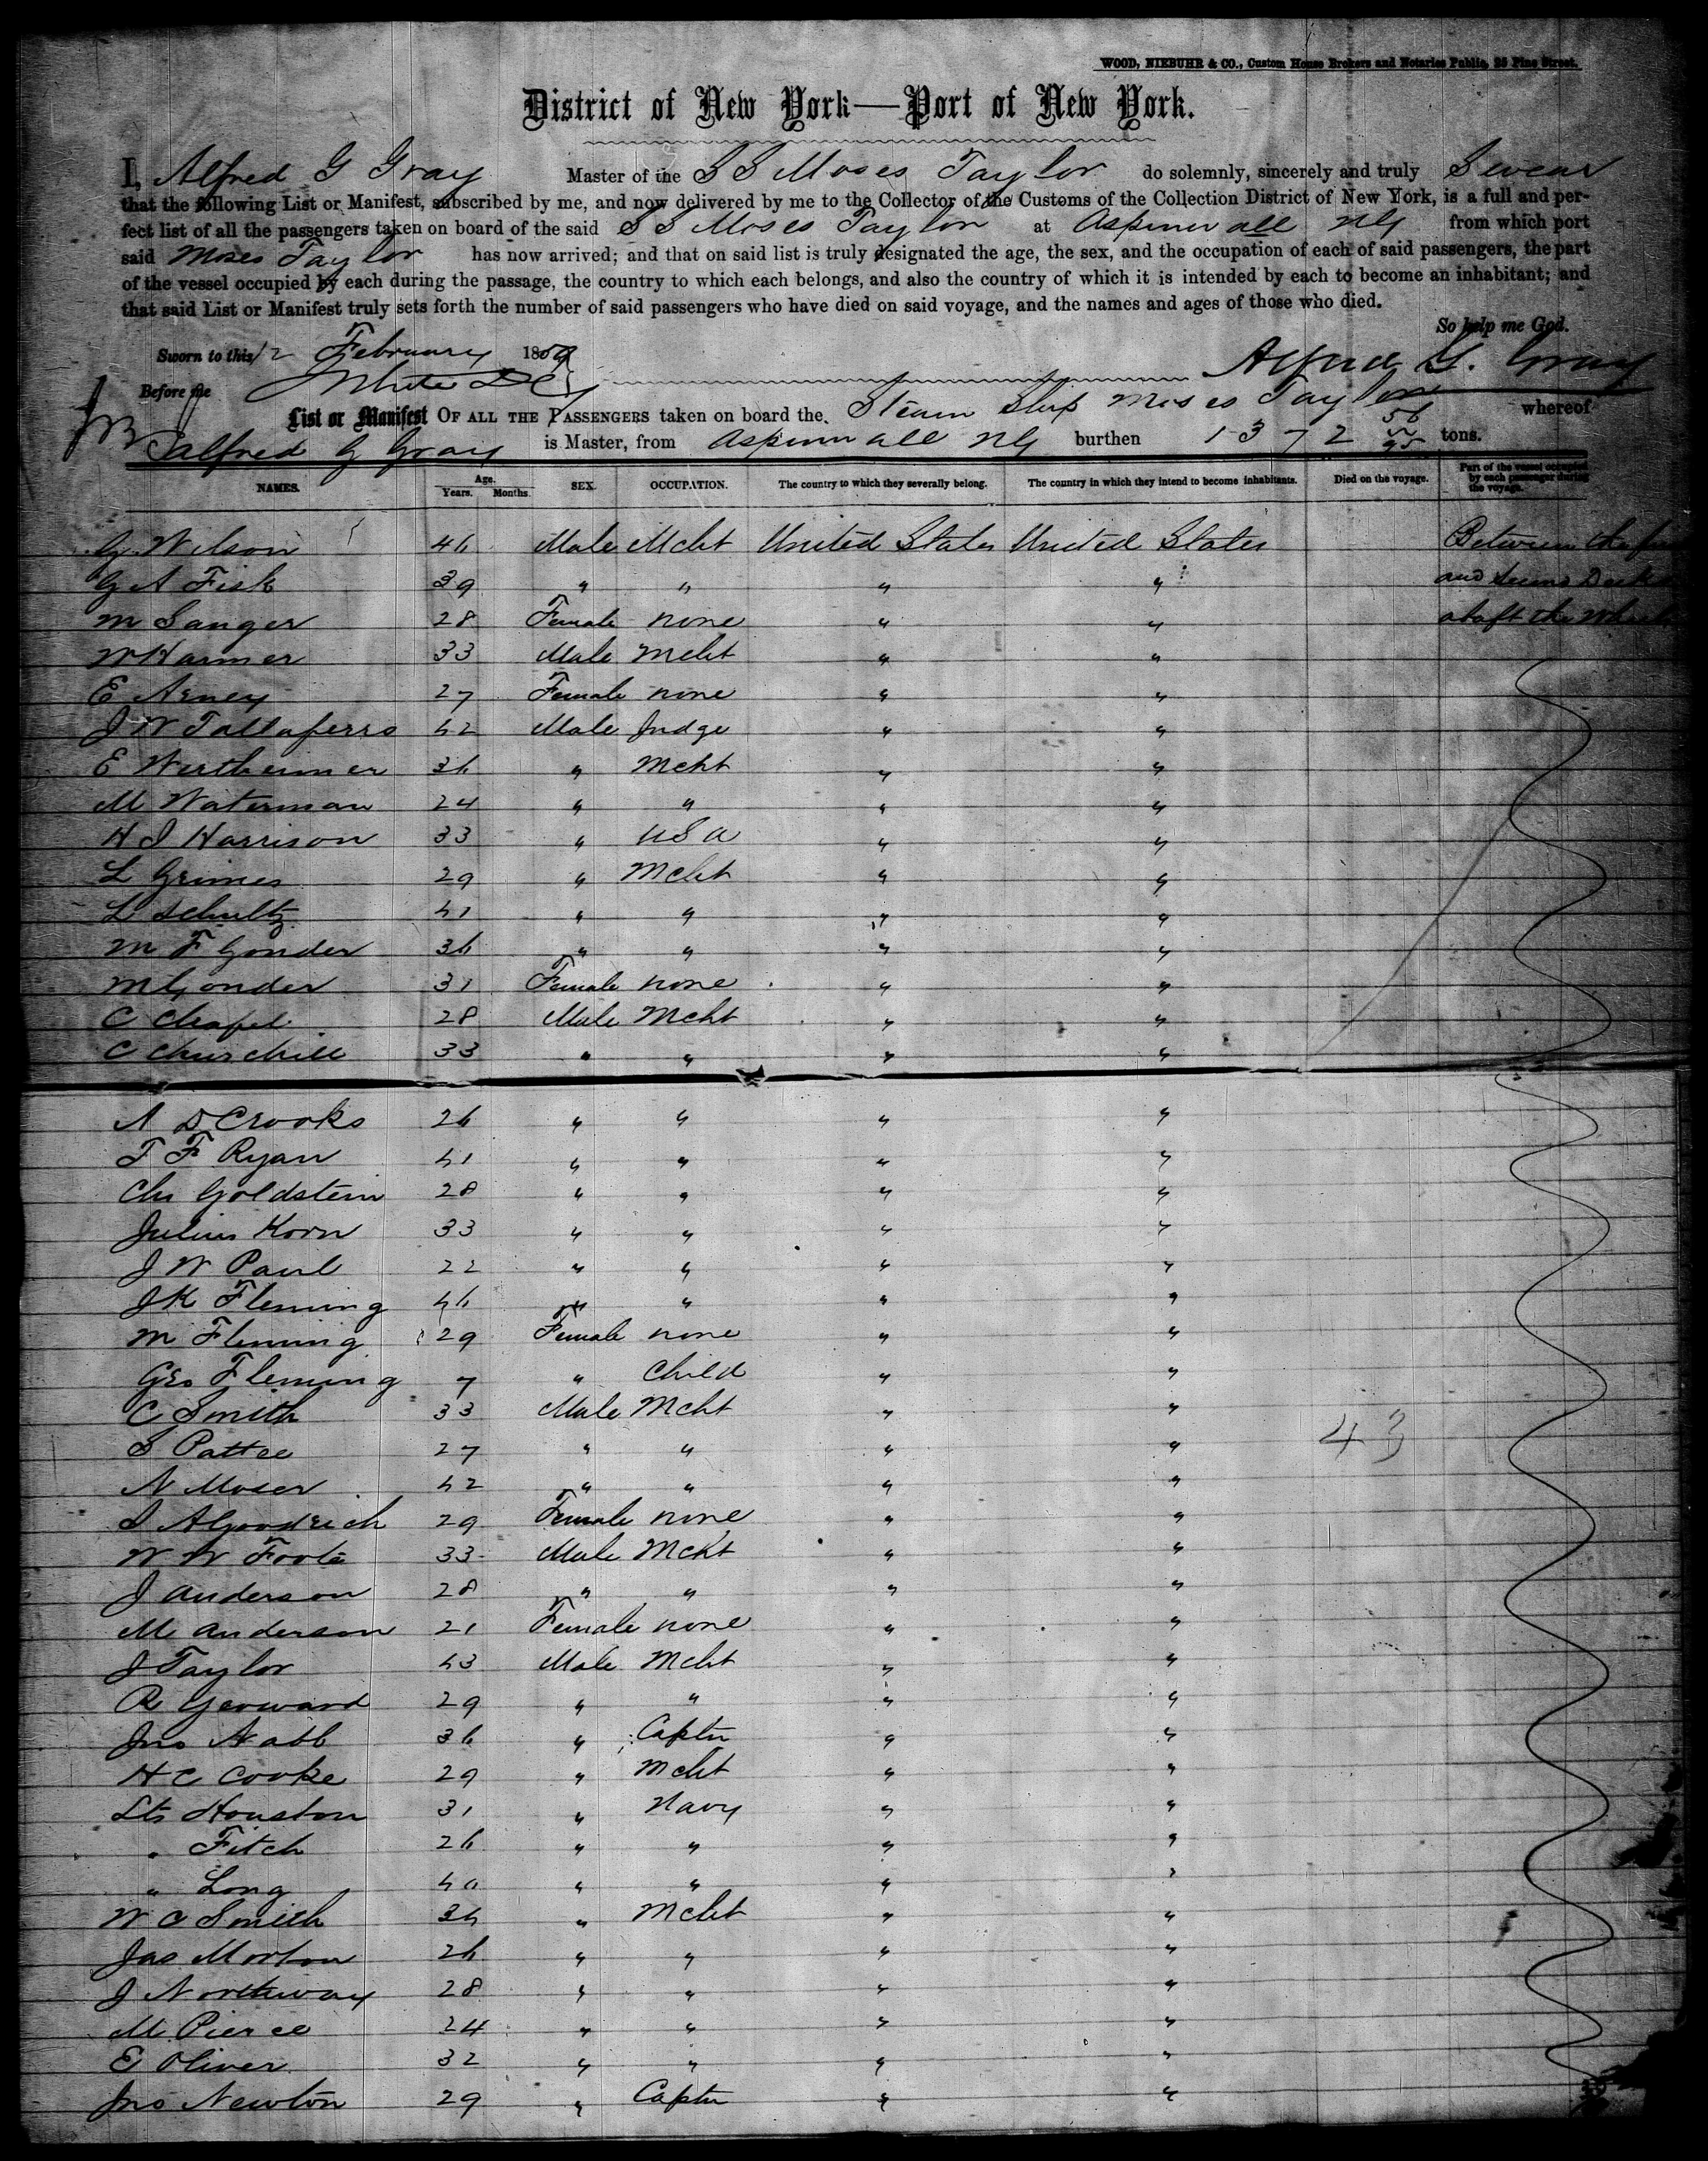 WOOD, NIEBUHR & CO., Custom House Brokers and Notaries Public, 25 Pine Street.
District of New York—Port of New York.
I, Alfred G Gray Master of the S S Moses Taylor do solemnly, sincerely and truly Swear
that the following List or Manifest, subscribed by me, and now delivered by me to the Collector of the Customs of the Collection District of New York, is a full and per-
fect list of all the passengers taken on board of the said S S Moses Taylor at Aspinwall NG from which port
said Moses Taylor has now arrived; and that on said list is truly designated the age, the sex, and the occupation of each of said passengers, the part
of the vessel occupied by each during the passage, the country to which each belongs, and also the country of which it is intended by each to become an inhabitant; and
that said List or Manifest truly sets forth the number of said passengers who have died on said voyage, and the names and ages of those who died.
So help me God.
Sworn to this 12 February 1859
Alfred G. Gray
Before me White DC
List or Manifest OF ALL THE PASSENGERS taken on board the Steam Ship Moses Taylor whereof
Alfred G Gray is Master, from Aspinwall NG burthen 1372 56/95 tons.
NAMES. Age. Years. Months. SEX. OCCUPATION. The country to which they severally belong. The country in which they intend to become inhabitants. Died on the voyage. Part of the vessel occupied by each passenger during the voyage.
G Wilson 46 Male Mcht United States United States Between the
G A Fisk 39 " " " " and Second Deck
M Sanger 28 Female none " " abaft the Wheel
W Harmer 33 Male Mcht " "
E Arney 27 Female none " "
J W Tallaferro 42 Male Judge " "
E Wertheimer 36 " Mcht " "
M Waterman 24 " " " "
H I Harrison 33 " USA " "
L Grimes 29 " Mcht " "
L Schultz 41 " " " "
M F Gonder 36 " " " "
M Gonder 31 Female none " "
C Chapel 28 Male Mcht " "
C Churchill 33 " " " "
A D Crooks 26 " " " "
T F Ryan 41 " " " "
Chs Goldstein 28 " " " "
Julius Korn 33 " " " "
J W Paul 22 " " " "
J K Fleming 46 " " " "
M Fleming 29 Female none " "
Geo Fleming 7 " Child " "
C Smith 33 Male Mcht " "
S Pattee 27 " " " " 43
N Moser 42 " " " "
S A Goodrich 29 Female none " "
W W Foote 33 Male Mcht " "
J Anderson 28 " " " "
M Anderson 21 Female none " "
J Taylor 43 Male Mcht " "
R Gerward 29 " " " "
Jno Nabb 36 " Captn " "
H C Cooke 29 " Mcht " "
Lts Houston 31 " Navy " "
" Fitch 26 " " " "
" Long 40 " " " "
W C Smith 34 " Mcht " "
Jas Morton 26 " " " "
J Northway 28 " " " "
M Pierce 24 " " " "
E Oliver 32 " " " "
Jno Newton 29 " Captn " "